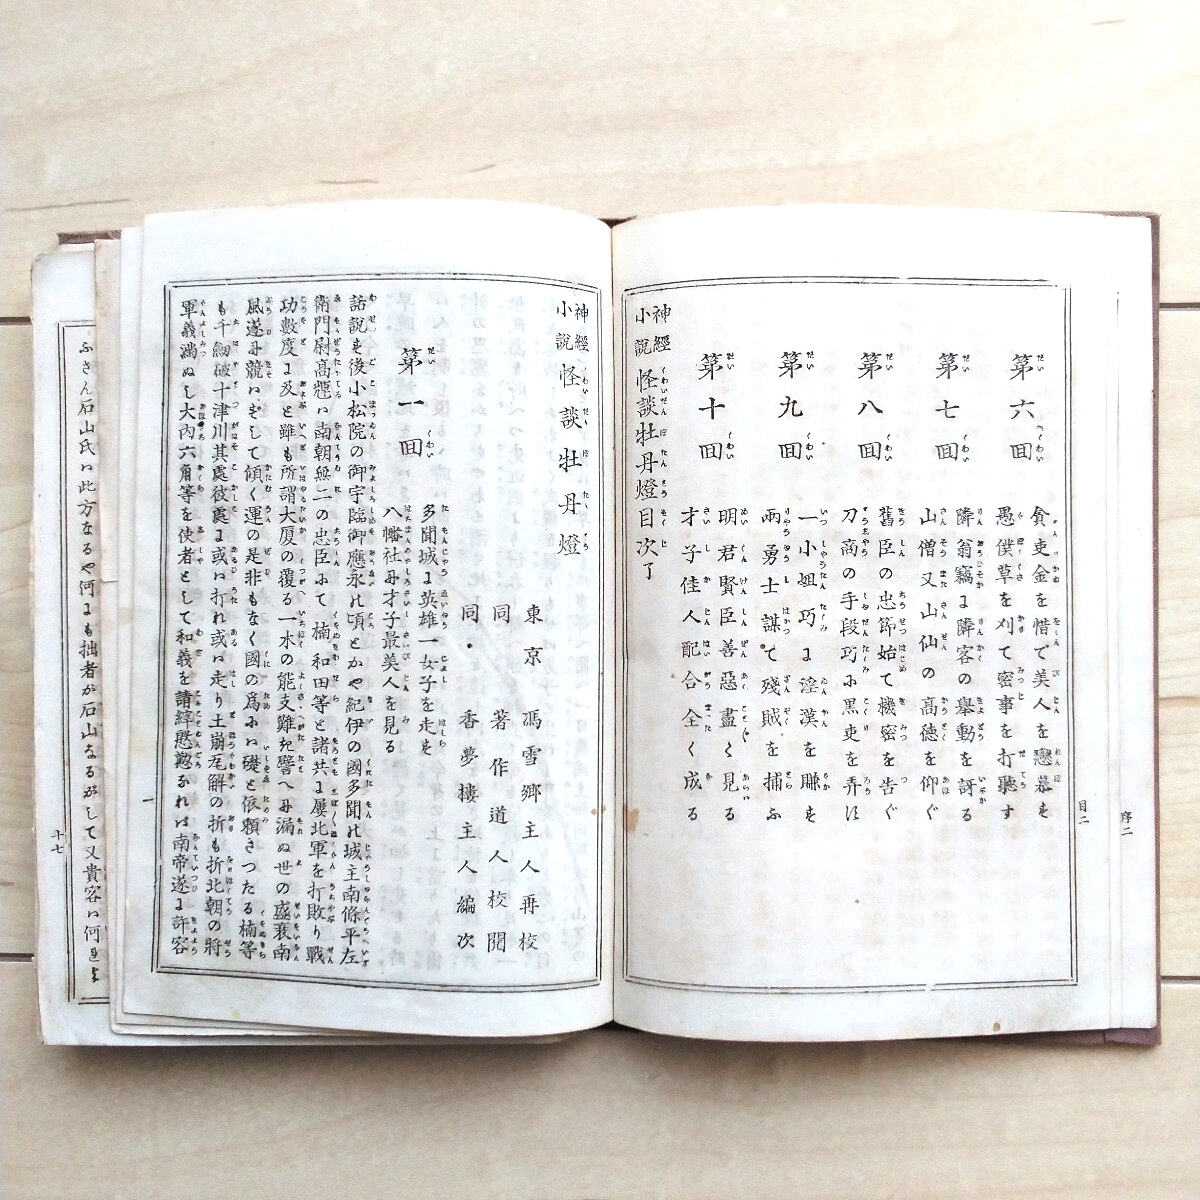 第六回
貪吏金を惜で美人を戀慕を
愚僕草を刈て密事を打聽す
第七回
隣翁竊に隣客の擧動を訝る
山僧又山仙の高徳を仰ぐ
第八回
舊臣の忠節始て機密を告ぐ
刀商の手段巧に黒吏を弄す
第九回
一小姐巧に淫漢を賺を
兩勇士謀て殘賊を捕ふ
第十回
明君賢臣善惡盡く見る
才子佳人配合全く成る
神經小說怪談牡丹燈目次了
目二
序二
神經小說怪談牡丹燈
東京 馮雪郷主人再校
同 著作道人校閲
同 香夢樓主人編次
第一回
多聞城に英雄一女子を走を
八幡社に才子最美人を見る
話説を後小松院の御宇臨御應永の頃とかや紀伊の國多聞の城主南條平左
衛門尉高
南朝無二の忠臣にて楠和田等と諸共に屢北軍を打敗り戰
功數度に及と雖も所謂大厦の覆る一木の能支難き譬へに漏ぬ世の盛衰南
風遂に競はずして傾く運の是非もなく國の爲には礎と依頼きつたる楠等
も千劔破十津川其處彼處に或は打れ或は走り土崩瓦解の折も折北朝の將
軍義滿ぬし大内六角等を使者として和義を請
ければ南帝遂に許容
一
ふさん石山氏は此方なるや何にも拙者が石山なるがして又貴客は何
十七